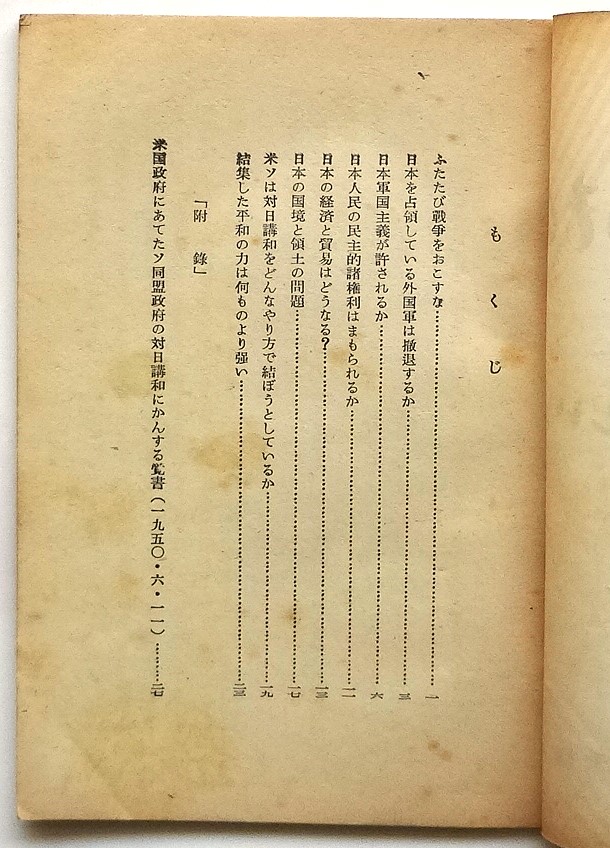 もくじ
ふたたび戦争をおこすな……一
日本を占領している外国軍は撤退するか……三
日本軍国主義が許されるか……六
日本人民の民主的諸権利はまもられるか……一一
日本の経済と貿易はどうなる?……一三
日本の国境と領土の問題……一七
米ソは対日講和をどんなやり方で結ぼうとしているか……一九
結集した平和の力は何ものより强い……二三
「附 錄」
米国政府にあてたソ同盟政府の対日講和にかんする覚書(一九五〇・六・一一)……二七